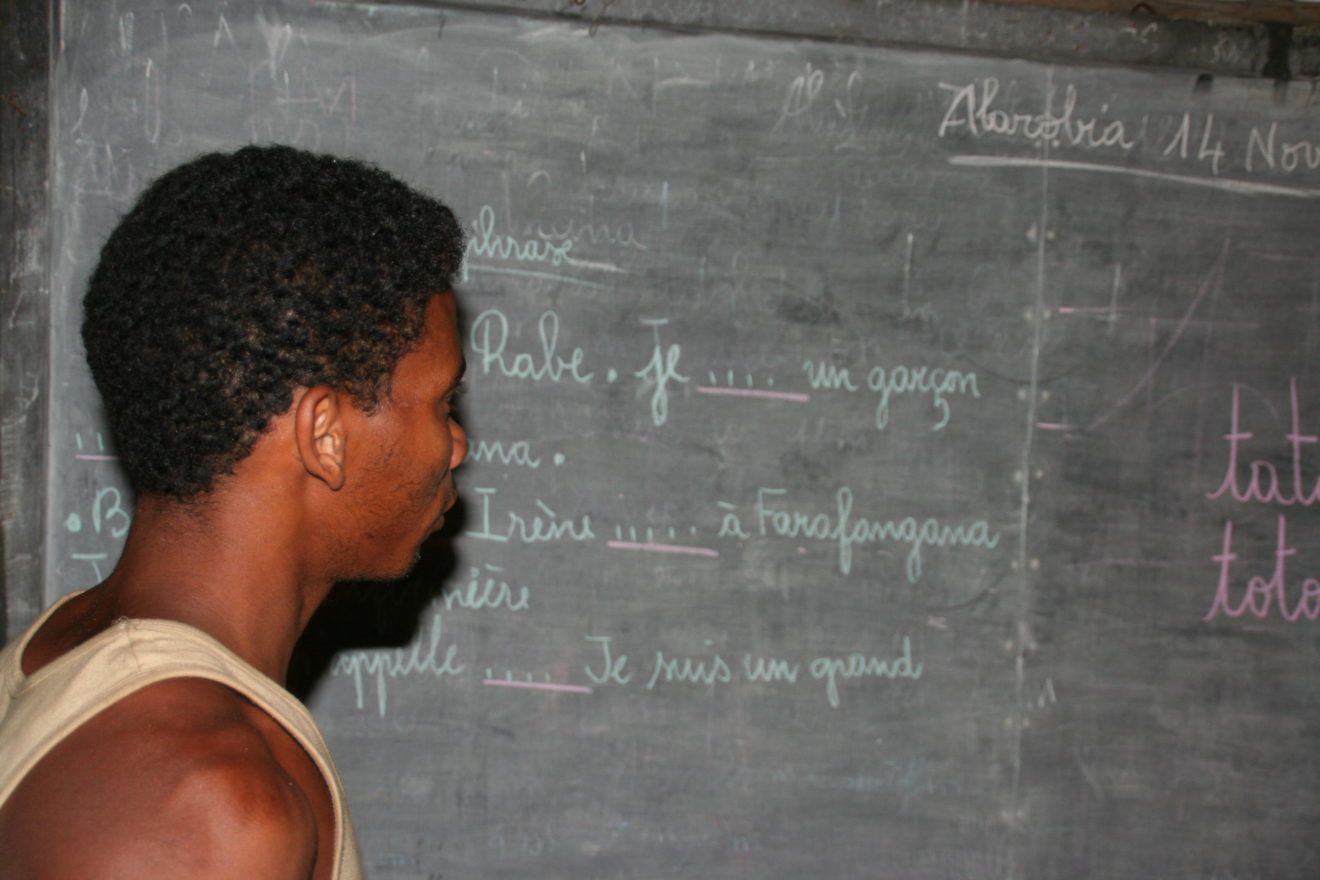 Alarobia 14 Nov
phrase
Rabe. Je .... un garçon
ana.
.B
Irène ..... à Farafangana
nière
appelle .... Je suis un grand
tat
toto